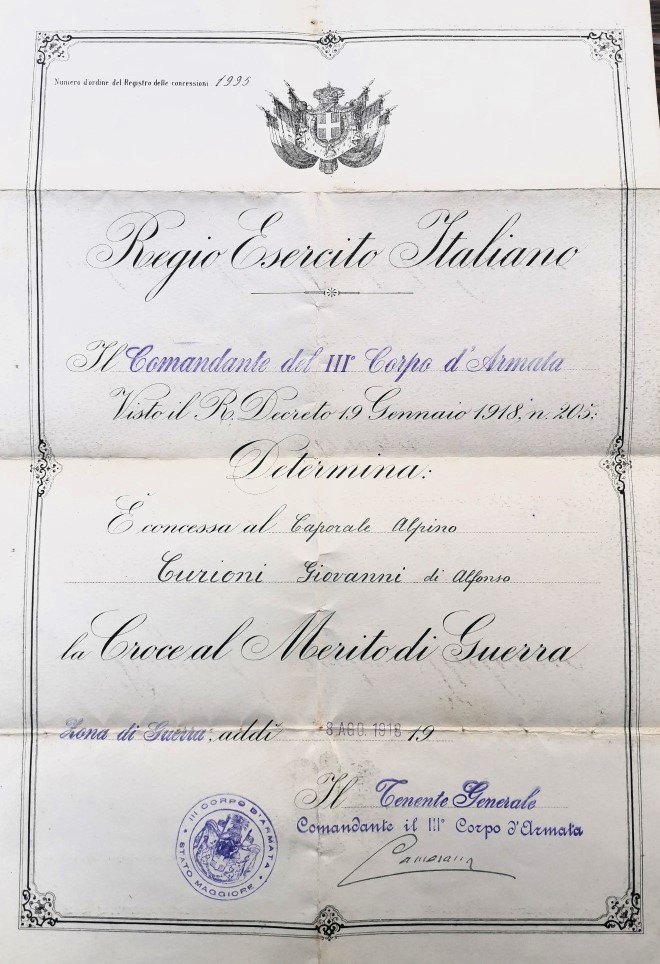 Numero d'ordine del Registro delle concessioni 1995
Regio Esercito Italiano
Il Comandante del III° Corpo d'Armata
Visto il R. Decreto 19 Gennaio 1918, n. 205;
Determina:
È concessa al Caporale Alpino
Curioni Giovanni di Alfonso
la Croce al Merito di Guerra
Zona di Guerra, addì 8 AGO. 1918 19
Il Tenente Generale
Comandante il III° Corpo d'Armata
Camerana
III CORPO D'ARMATA
STATO MAGGIORE